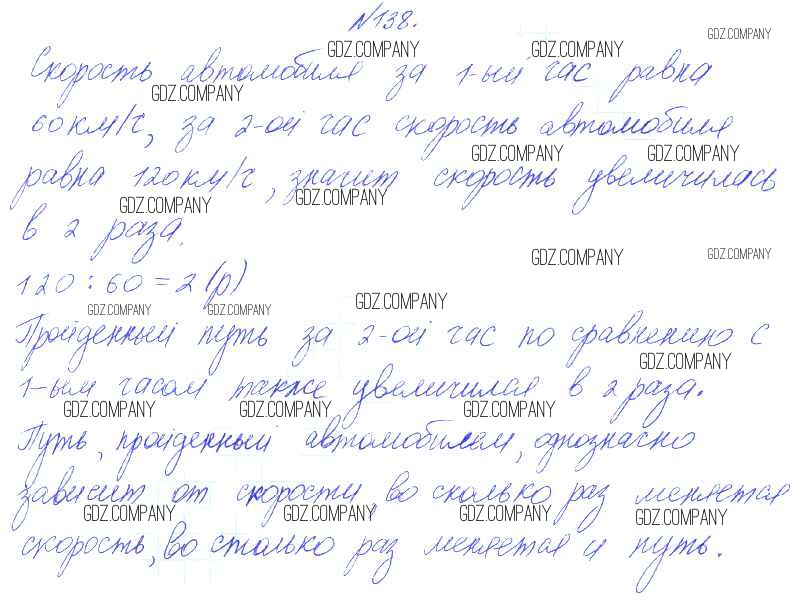 №138.
GDZ.COMPANY GDZ.COMPANY GDZ.COMPANY
Скорость автомобиля за 1-ый час равна
GDZ.COMPANY
60 км/ч, за 2-ой час скорость автомобиля
GDZ.COMPANY GDZ.COMPANY
равна 120 км/ч, значит скорость увеличилась
GDZ.COMPANY GDZ.COMPANY
в 2 раза.
GDZ.COMPANY GDZ.COMPANY
120 : 60 = 2 (р)
GDZ.COMPANY GDZ.COMPANY GDZ.COMPANY
Пройденный путь за 2-ой час по сравнению с
GDZ.COMPANY
1-ым часом также увеличился в 2 раза.
GDZ.COMPANY GDZ.COMPANY GDZ.COMPANY
Путь, пройденный автомобилем, однозначно
зависит от скорости, во сколько раз меняется
GDZ.COMPANY GDZ.COMPANY GDZ.COMPANY GDZ.COMPANY
скорость, во столько раз меняется и путь.